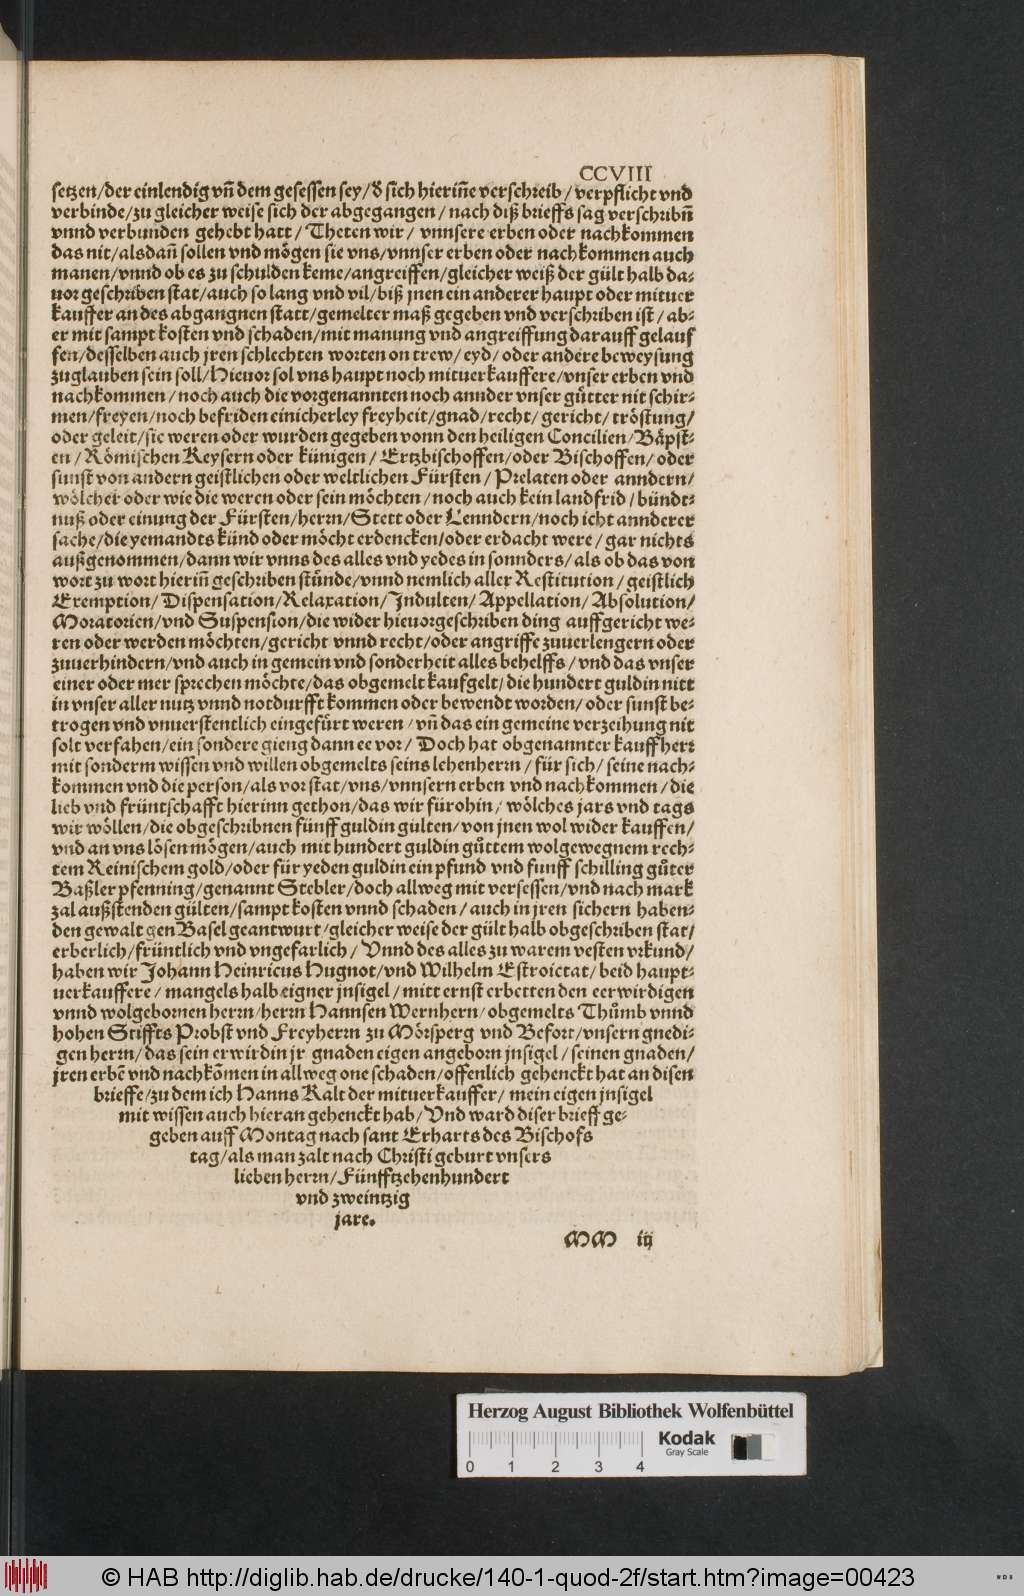 CCVIII
setzen/der einlendig vñ dem gesessen sey/d̕ sich hieriñe verschreib/verpflicht vnd
verbinde/zu gleicher weise sich der abgegangen/nach diß brieffs sag verschribñ
vnnd verbunden gehebt hatt/Theten wir/vnnsere erben oder nachkommen
das nit/alsdañ sollen vnd mögen sie vns/vnnser erben oder nachkommen auch
manen/vnnd ob es zu schulden keme/angreiffen/gleicher weiß der gült halb da-
uor geschriben stat/auch so lang vnd vil/biß jnen ein anderer haupt oder mituer
kauffer an des abgangnen statt/gemelter maß gegeben vnd verschriben ist/ab-
er mit sampt kosten vnd schaden/mit manung vnd angreiffung darauff gelauf
fen/desselben auch jren schlechten worten on trew/eyd/oder andere beweysung
zuglauben sein soll/Hieuor sol vns haupt noch mituerkauffere/vnser erben vnd
nachkommen/noch auch die vorgenannten noch annder vnser gůtter nit schir-
men/freyen/noch befriden einicherley freyheit/gnad/recht/gericht/tröstung/
oder geleit/sie weren oder wurden gegeben vonn den heiligen Concilien/Bäpst-
en/Römischen Keysern oder künigen/Ertzbischoffen/oder Bischoffen/oder
sunst von andern geistlichen oder weltlichen Fürsten/Prelaten oder anndern/
wölcher oder wie die weren oder sein möchten/noch auch kein landfrid/bündt-
nuß oder einung der Fürsten/herrn/Stett oder Lenndern/noch icht annderer
sache/die yemandts künd oder möcht erdencken/oder erdacht were/gar nichts
außgenommen/dann wir vnns des alles vnd yedes in sonnders/als ob das von
wort zu wort hieriñ geschriben stünde/vnnd nemlich aller Restitution/geistlich
Exemption/Dispensation/Relaxation/Indulten/Appellation/Absolution/
Moratorien/vnd Suspension/die wider hieuorgeschriben ding auffgericht we-
ren oder werden möchten/gericht vnnd recht/oder angriffe zuuerlengern oder
zuuerhindern/vnd auch in gemein vnd sonderheit alles behelffs/vnd das vnser
einer oder mer sprechen möchte/das obgemelt kaufgelt/die hundert guldin nitt
in vnser aller nutz vnnd notdurfft kommen oder bewendt worden/oder sunst be-
trogen vnd vnuerstentlich eingefürt weren/vñ das ein gemeine verzeihung nit
solt verfahen/ein sondere gieng dann ee vor/Doch hat obgenannter kauffherr
mit sonderm wissen vnd willen obgemelts seins lehenherrn/für sich/seine nach-
kommen vnd die person/als vor stat/vns/vnnsern erben vnd nachkommen/die
lieb vnd früntschafft hierinn gethon/das wir fürohin/wölches jars vnd tags
wir wöllen/die obgeschribnen fünff guldin gulten/von jnen wol wider kauffen/
vnd an vns lösen mögen/auch mit hundert guldin gůttem wolgewegnem rech-
tem Reinischem gold/oder für yeden guldin ein pfund vnd funff schilling gůter
Baßler pfenning/genannt Stebler/doch allweg mit versessen/vnd nach mark
zal außstenden gülten/sampt kosten vnnd schaden/auch in jren sichern haben-
den gewalt gen Basel geantwurt/gleicher weise der gült halb obgeschriben stat/
erberlich/früntlich vnd vngefarlich/Vnnd des alles zu warem vesten vrkund/
haben wir Johann Heinricus Hugnot/vnd Wilhelm Estroictat/beid haupt-
uerkauffere/mangels halb eigner jnsigel/mitt ernst erbetten den eerwirdigen
vnnd wolgebornen herrn/herrn Hannsen Wernhern/obgemelts Thůmb vnnd
hohen Stiffts Probst vnd Freyherrn zu Mörsperg vnd Befort/vnsern gnedi-
gen herrn/das sein erwirdin jr gnaden eigen angeborn jnsigel/seinen gnaden/
jren erbē vnd nachkōmen in allweg one schaden/offenlich gehenckt hat an disen
brieffe/zu dem ich Hanns Kalt der mituerkauffer/mein eigen jnsigel
mit wissen auch hieran gehenckt hab/Vnd ward diser brieff ge-
geben auff Montag nach sant Erharts des Bischofs
tag/als man zalt nach Christi geburt vnsers
lieben herrn/Fünfftzehenhundert
vnd zweintzig
jare.
MM iij
Herzog August Bibliothek Wolfenbüttel
Kodak
Gray Scale
0 1 2 3 4
© HAB http://diglib.hab.de/drucke/140-1-quod-2f/start.htm?image=00423